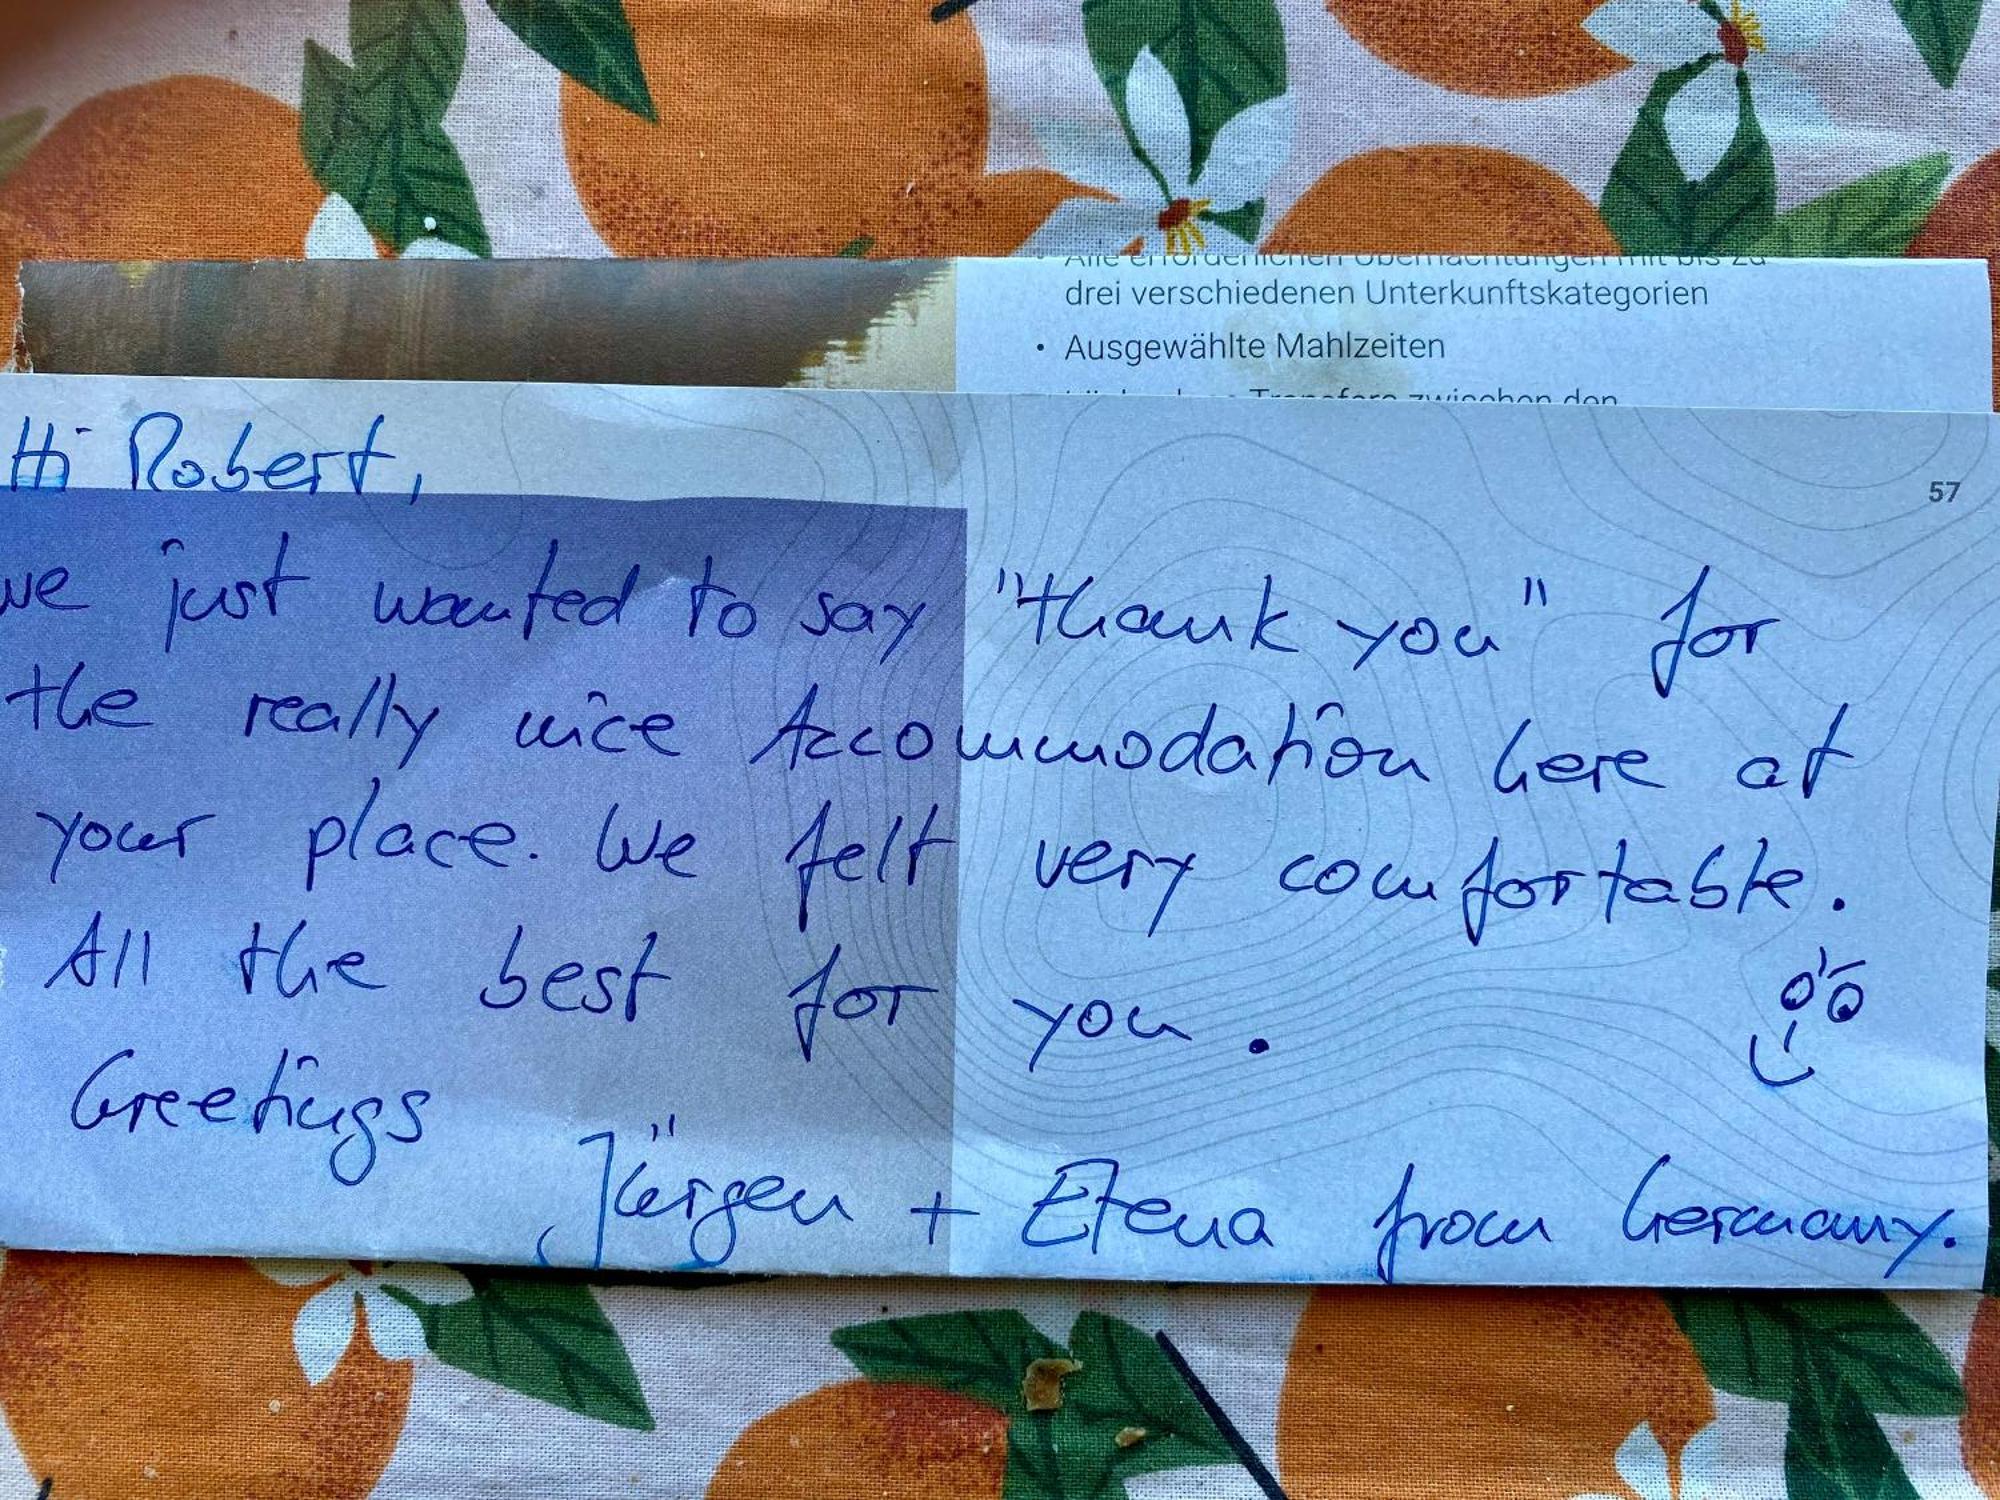 drei verschiedenen Unterkunftskategorien
• Ausgewählte Mahlzeiten
Transfers zwischen den
57
Hi Robert,
we just wanted to say "thank you" for
the really nice Accommodation here at
your place. We felt very comfortable.
All the best for you.
Greetings
Jürgen + Elena from Germany.